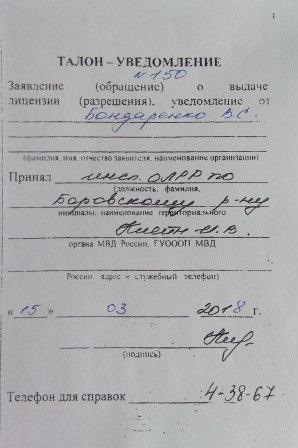 ТАЛОН – УВЕДОМЛЕНИЕ
N 150
Заявление (обращение) о выдаче
лицензии (разрешения), уведомление от
Бондаренко В.С.
(фамилия, имя, отчество заявителя, наименование организации)
Принял инсп. ОЛРР по
(должность, фамилия,
Боровскому р-ну
инициалы, наименование территориального
И.В.
органа МВД России, ГУОООП МВД
России, адрес и служебный телефон)
« 15 » 03 2018 г.
(подпись)
Телефон для справок 4-38-67